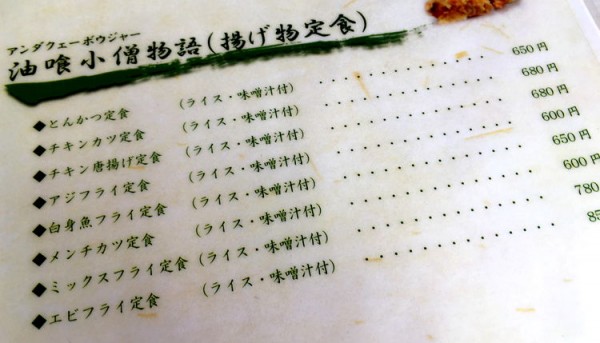 アンダクェーボウジャー
油喰小僧物語(揚げ物定食)
◆とんかつ定食 (ライス・味噌汁付) 650円
◆チキンカツ定食 (ライス・味噌汁付) 680円
◆チキン唐揚げ定食 (ライス・味噌汁付) 680円
◆アジフライ定食 (ライス・味噌汁付) 600円
◆白身魚フライ定食 (ライス・味噌汁付) 650円
◆メンチカツ定食 (ライス・味噌汁付) 600円
◆ミックスフライ定食 (ライス・味噌汁付) 780
◆エビフライ定食 (ライス・味噌汁付)